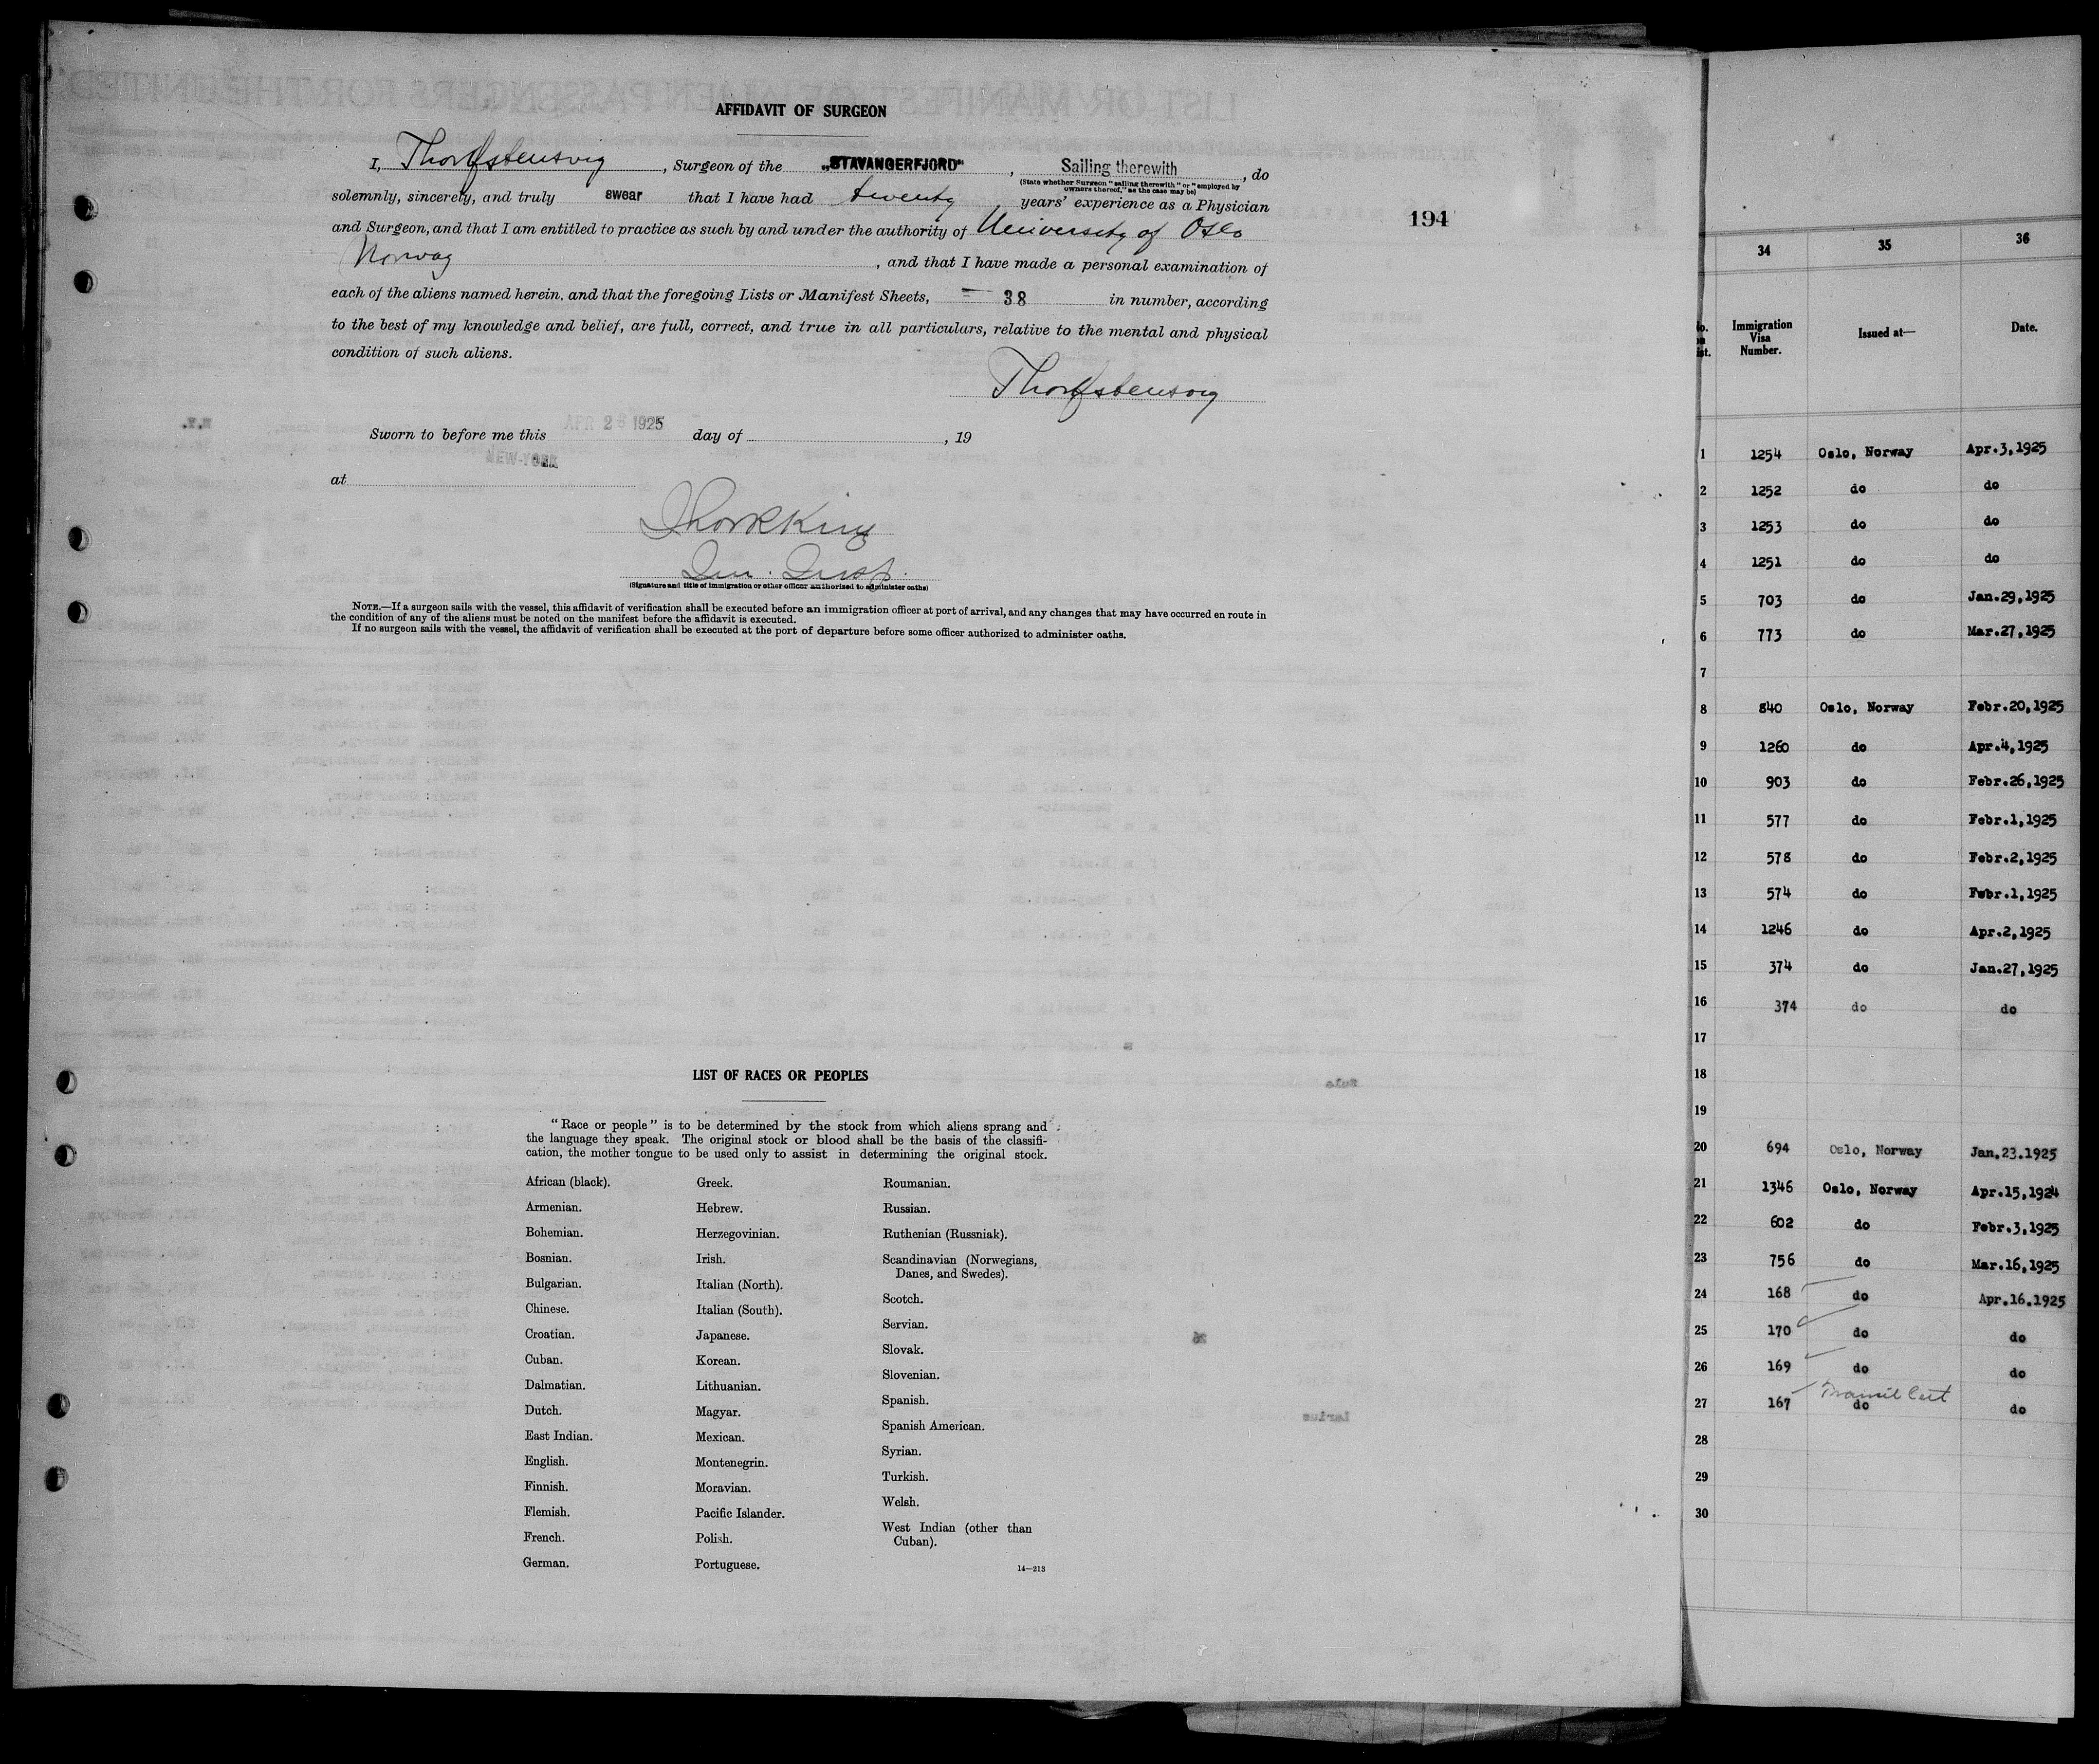 AFFIDAVIT OF SURGEON
I, , Surgeon of the „STAVANGERFJORD“, Sailing therewith, do
(State whether Surgeon “sailing therewith” or “employed by owners thereof,” as the case may be)
solemnly, sincerely, and truly swear that I have had twenty years’ experience as a Physician
and Surgeon, and that I am entitled to practice as such by and under the authority of University of Oslo
Norway, and that I have made a personal examination of
each of the aliens named herein, and that the foregoing Lists or Manifest Sheets, 38 in number, according
to the best of my knowledge and belief, are full, correct, and true in all particulars, relative to the mental and physical
condition of such aliens.
194
APR 28 1925
Sworn to before me this day of , 19
NEW-YORK
at
Imm. Insp.
(Signature and title of immigration or other officer authorized to administer oaths)
NOTE.—If a surgeon sails with the vessel, this affidavit of verification shall be executed before an immigration officer at port of arrival, and any changes that may have occurred en route in
the condition of any of the aliens must be noted on the manifest before the affidavit is executed.
If no surgeon sails with the vessel, the affidavit of verification shall be executed at the port of departure before some officer authorized to administer oaths.
LIST OF RACES OR PEOPLES
“Race or people” is to be determined by the stock from which aliens sprang and
the language they speak. The original stock or blood shall be the basis of the classifi-
cation, the mother tongue to be used only to assist in determining the original stock.
African (black).
Armenian.
Bohemian.
Bosnian.
Bulgarian.
Chinese.
Croatian.
Cuban.
Dalmatian.
Dutch.
East Indian.
English.
Finnish.
Flemish.
French.
German.
Greek.
Hebrew.
Herzegovinian.
Irish.
Italian (North).
Italian (South).
Japanese.
Korean.
Lithuanian.
Magyar.
Mexican.
Montenegrin.
Moravian.
Pacific Islander.
Polish.
Portuguese.
Roumanian.
Russian.
Ruthenian (Russniak).
Scandinavian (Norwegians,
Danes, and Swedes).
Scotch.
Servian.
Slovak.
Slovenian.
Spanish.
Spanish American.
Syrian.
Turkish.
Welsh.
West Indian (other than
Cuban).
14—213
34 35 36
Immigration Visa Number. Issued at— Date.
1 1254 Oslo, Norway Apr.3,1925
2 1252 do do
3 1253 do do
4 1251 do do
5 703 do Jan.29,1925
6 773 do Mar.27,1925
7
8 840 Oslo, Norway Febr.20,1925
9 1260 do Apr.4,1925
10 903 do Febr.26,1925
11 577 do Febr.1,1925
12 578 do Febr.2,1925
13 574 do Febr.1,1925
14 1246 do Apr.2,1925
15 374 do Jan.27,1925
16 374 do do
17
18
19
20 694 Oslo, Norway Jan.23.1925
21 1346 Oslo, Norway Apr.15,1924
22 602 do Febr.3,1925
23 756 do Mar.16,1925
24 168 do Apr.16.1925
25 170 do do
26 169 do do
Transit Cert
27 167 do do
28
29
30